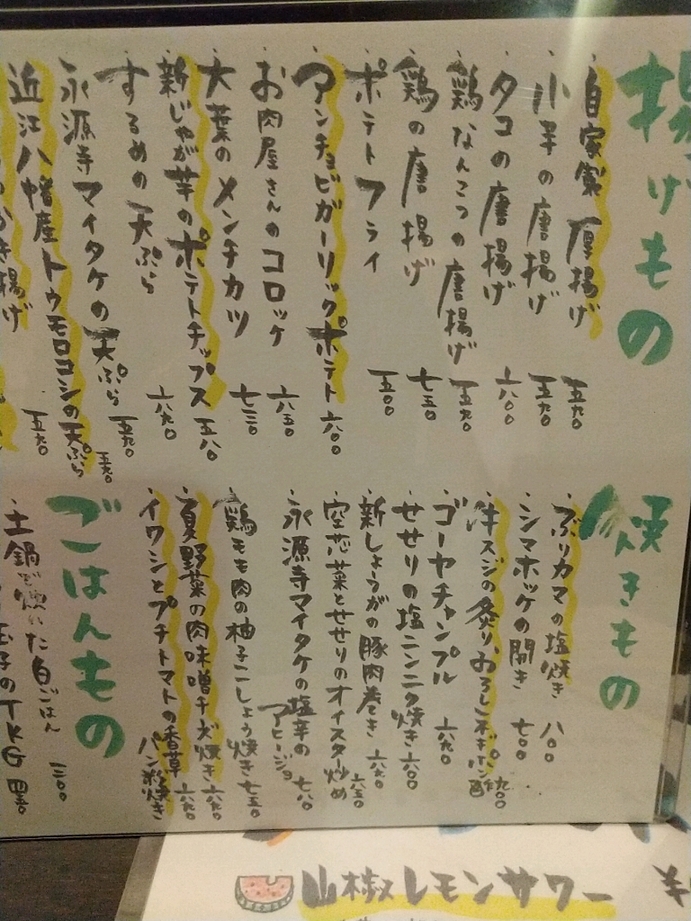 揚げもの
・自家製厚揚げ 五五〇
・小芋の唐揚げ 五五〇
・タコの唐揚げ 六〇〇
・鶏なんこつの唐揚げ 五五〇
・鶏の唐揚げ 七五〇
・ポテトフライ 五〇〇
・アンチョビガーリックポテト 六〇〇
・お肉屋さんのコロッケ 六五〇
・大葉のメンチカツ 七三〇
・新じゃが芋のポテトチップス 五八〇
・するめの天ぷら 六八〇
・永源寺マイタケの天ぷら 五五〇
・近江八幡産トウモロコシの天ぷら 五五〇
かき揚げ 五五〇
焼きもの
・ぶりカマの塩焼き 八〇〇
・シマホッケの開き 七〇〇
・牛スジの炙りおろしポン酢
・ゴーヤチャンプル 六八〇
・せせりの塩ニンニク焼き 六〇〇
・新しょうがの豚肉巻き 六八〇
・空芯菜とせせりのオイスター炒め 六五〇
・永源寺マイタケの塩辛のアヒージョ 七八〇
・鶏モモ肉の柚子こしょう焼き 七五〇
・夏野菜の肉味噌チーズ焼き 六八〇
・イワシとプチトマトの香草パン粉焼き 六八〇
ごはんもの
・土鍋で炊いた白ごはん 三〇〇
玉子のTKG 四五〇
山椒レモンサワー